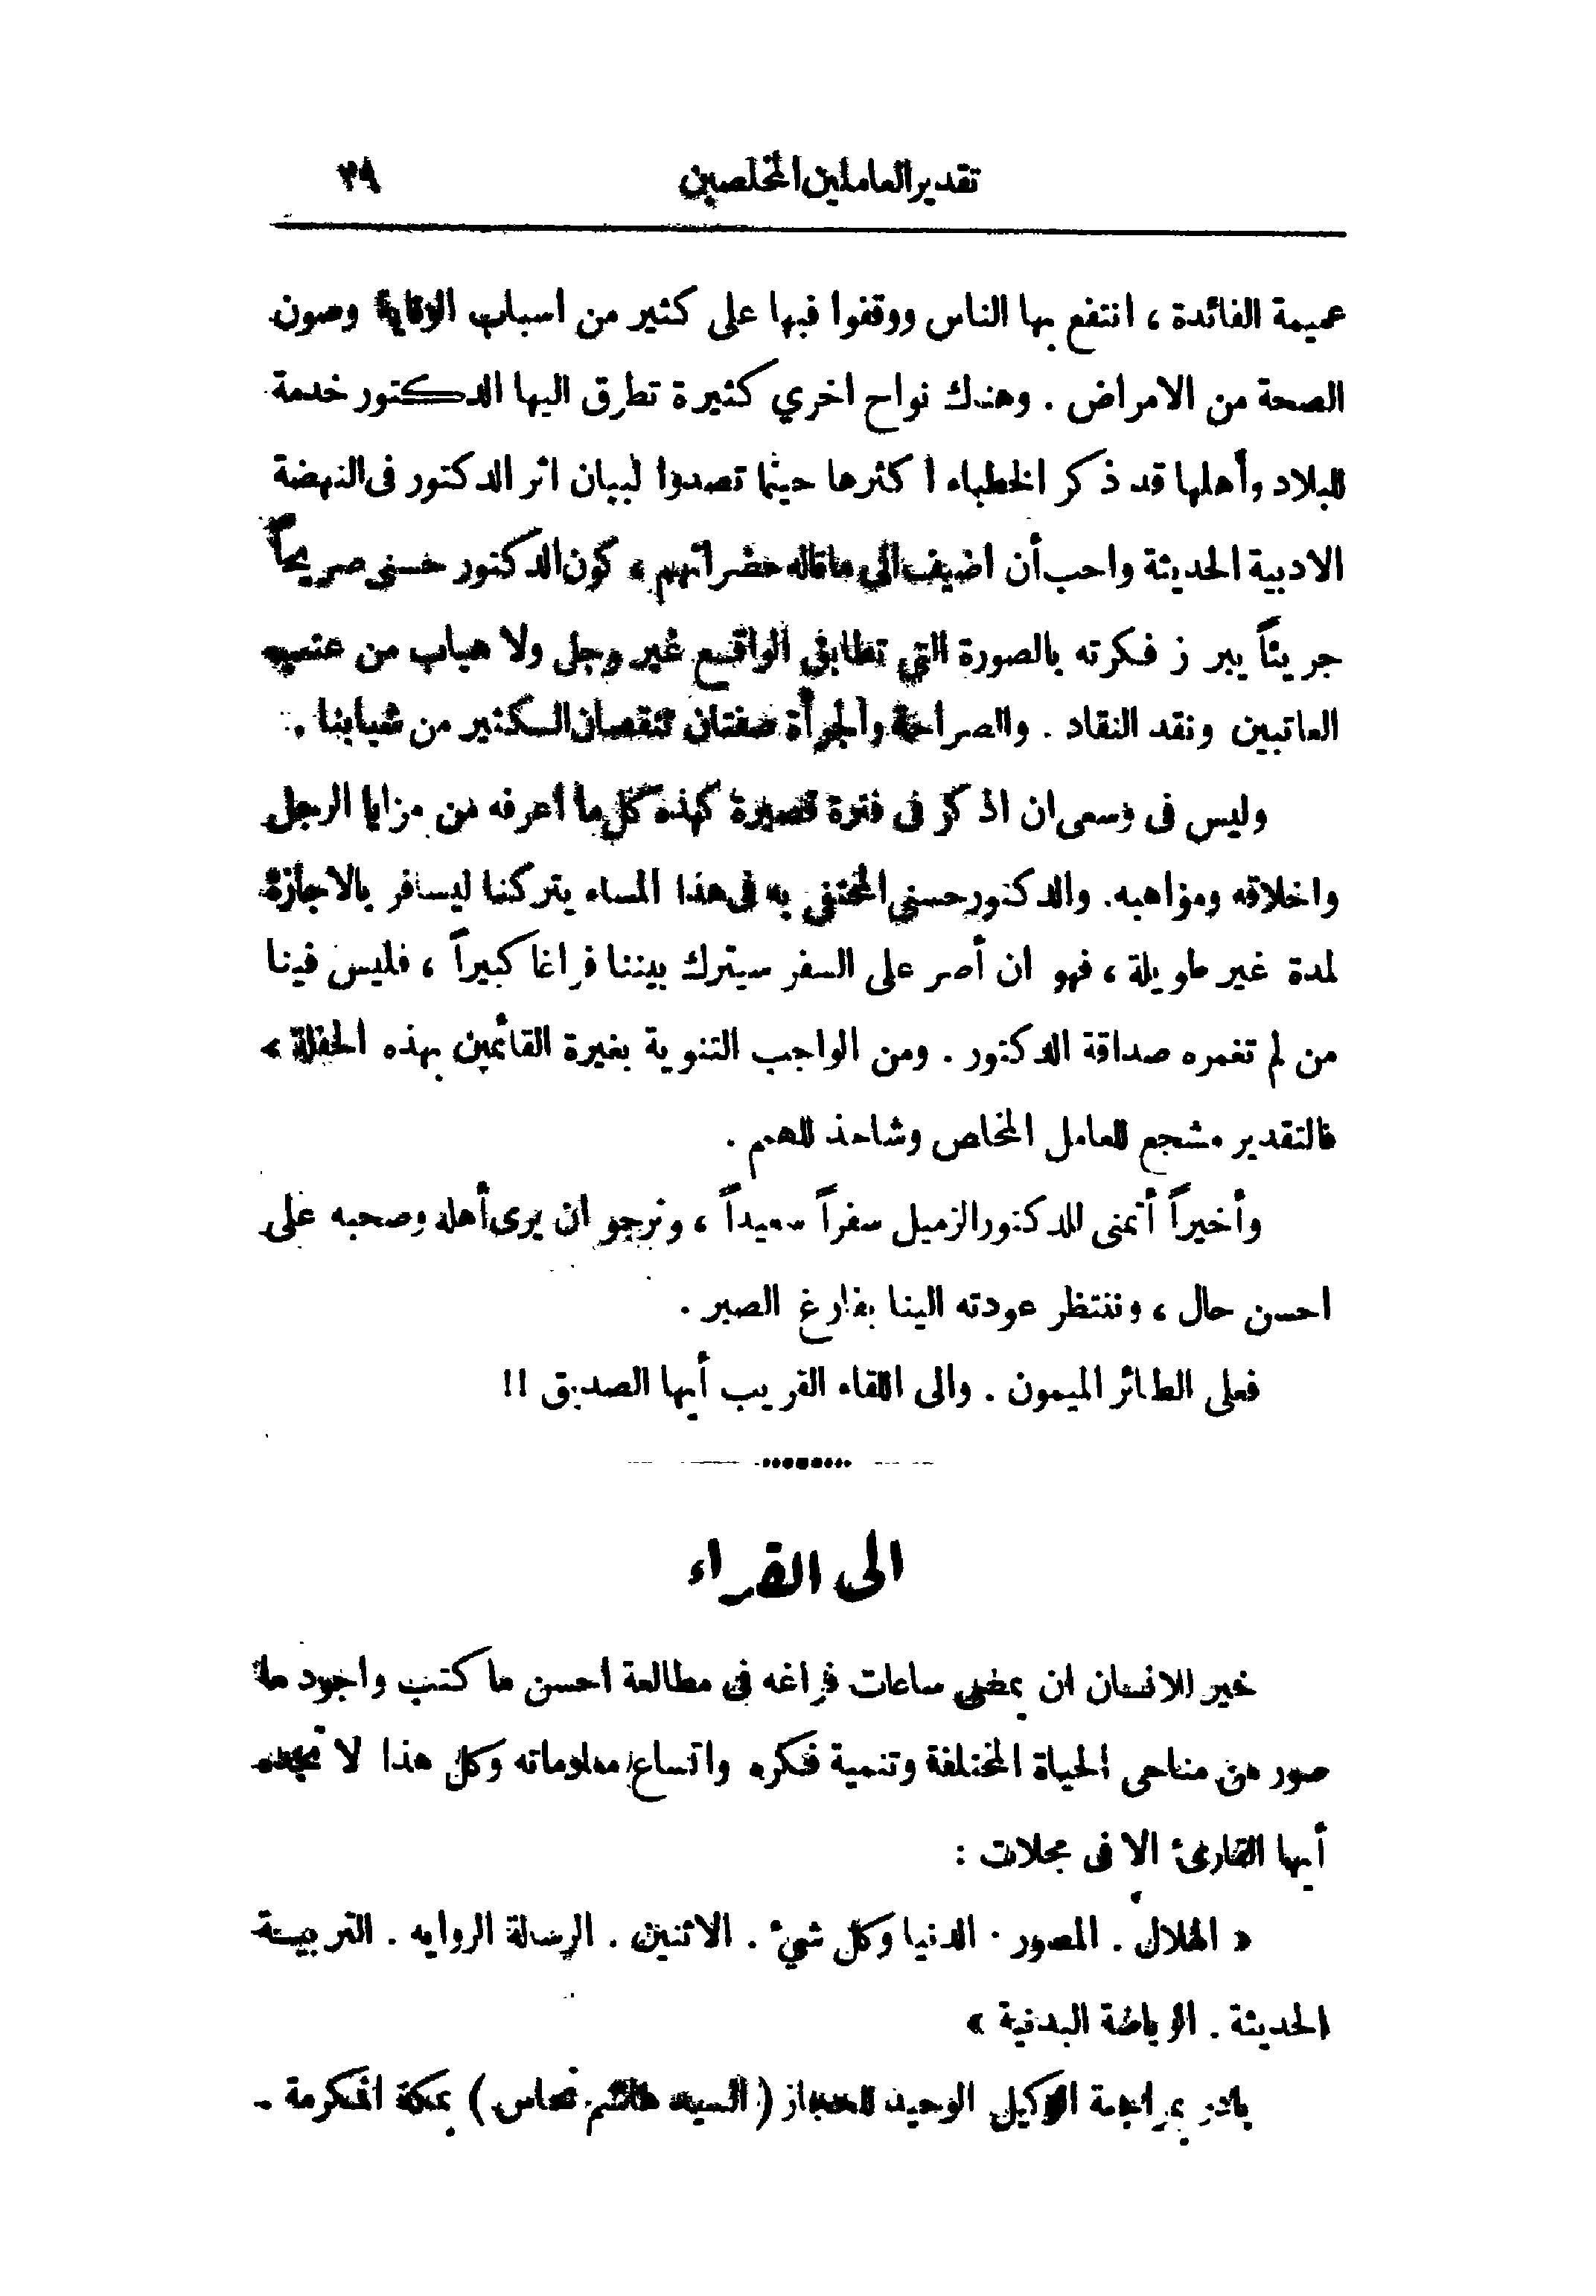 تقدير العاملين المخلصين ٣٩
عميمة الفائدة ، انتفع بها الناس ووقفوا فيها على كثير من اسباب الوقاية وصون
الصحة من الامراض . وهنك نواح اخري كثيرة تطرق اليها الدكتور خدمة
للبلاد وأهلها قد ذكر الخطباء اكثرها حيثما تصدوا لبيان اثر الدكتور فى النهضة
الادبية الحديثة واحب أن اضيف الى ماقاله حضراتهم ، كون الدكتور حسنى صريحاً
جريئاً يبرز فكرته بالصورة التي تطابق الواقع غير وجل ولا هياب من عتب
العاتبين ونقد النقاد . والصراحة والجرأة صفتان تنقصان الكثير من شبابنا .
وليس فى وسعى ان اذكر فى فترة قصيرة كهذه كل ما اعرفه من مزايا الرجل
واخلاقه ومواهبه . والدكتور حسني المحتفي به فى هذا المساء يتركنا ليسافر بالاجازة
لمدة غير طويلة ، فهو ان أصر على السفر سيترك بيننا فراغا كبيراً ، فليس فينا
من لم تغمره صداقة الدكتور . ومن الواجب التنوية بغيرة القائمين بهذه الحفلة >
فالتقدير مشجع للعامل المخلص وشاحذ للهمم .
وأخيراً أتمنى للدكتور الزميل سفراً سعيداً ، ونرجو ان يرى أهله وصحبه على
احسن حال ، وننتظر عودته الينا بفارغ الصبر .
فعلى الطائر الميمون . والى اللقاء القريب أيها الصديق !!
الى القراء
خير للانسان ان يمضى ساعات فراغه فى مطالعة احسن ما كتب واجود ما
صور من مناحى الحياة المختلفة وتنمية فكره واتساع معلوماته وكل هذا لا تجده
أيها القارئ الا فى مجلات :
« الهلال . المصور . الدنيا وكل شيء . الاثنين . الرسالة الروايه . التربيـة
الحديثة . الرياضة البدنية »
بادر بمراجعة الوكيل الوحيد للحجاز ( السيد هاشم نحاس ) بمكة المكرمة -